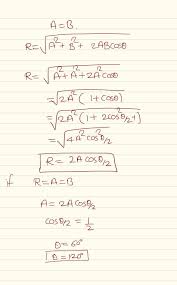 A = B.
R = √(A² + B² + 2ABcosθ)
R = √(A² + A² + 2A²cosθ)
= √(2A² (1 + cosθ))
= √(2A² (1 + 2cos²θ/2 - 1))
= √(4A² cos²θ/2)
R = 2A cosθ/2
if R = A = B
A = 2A cosθ/2
cosθ/2 = 1/2
θ = 120°